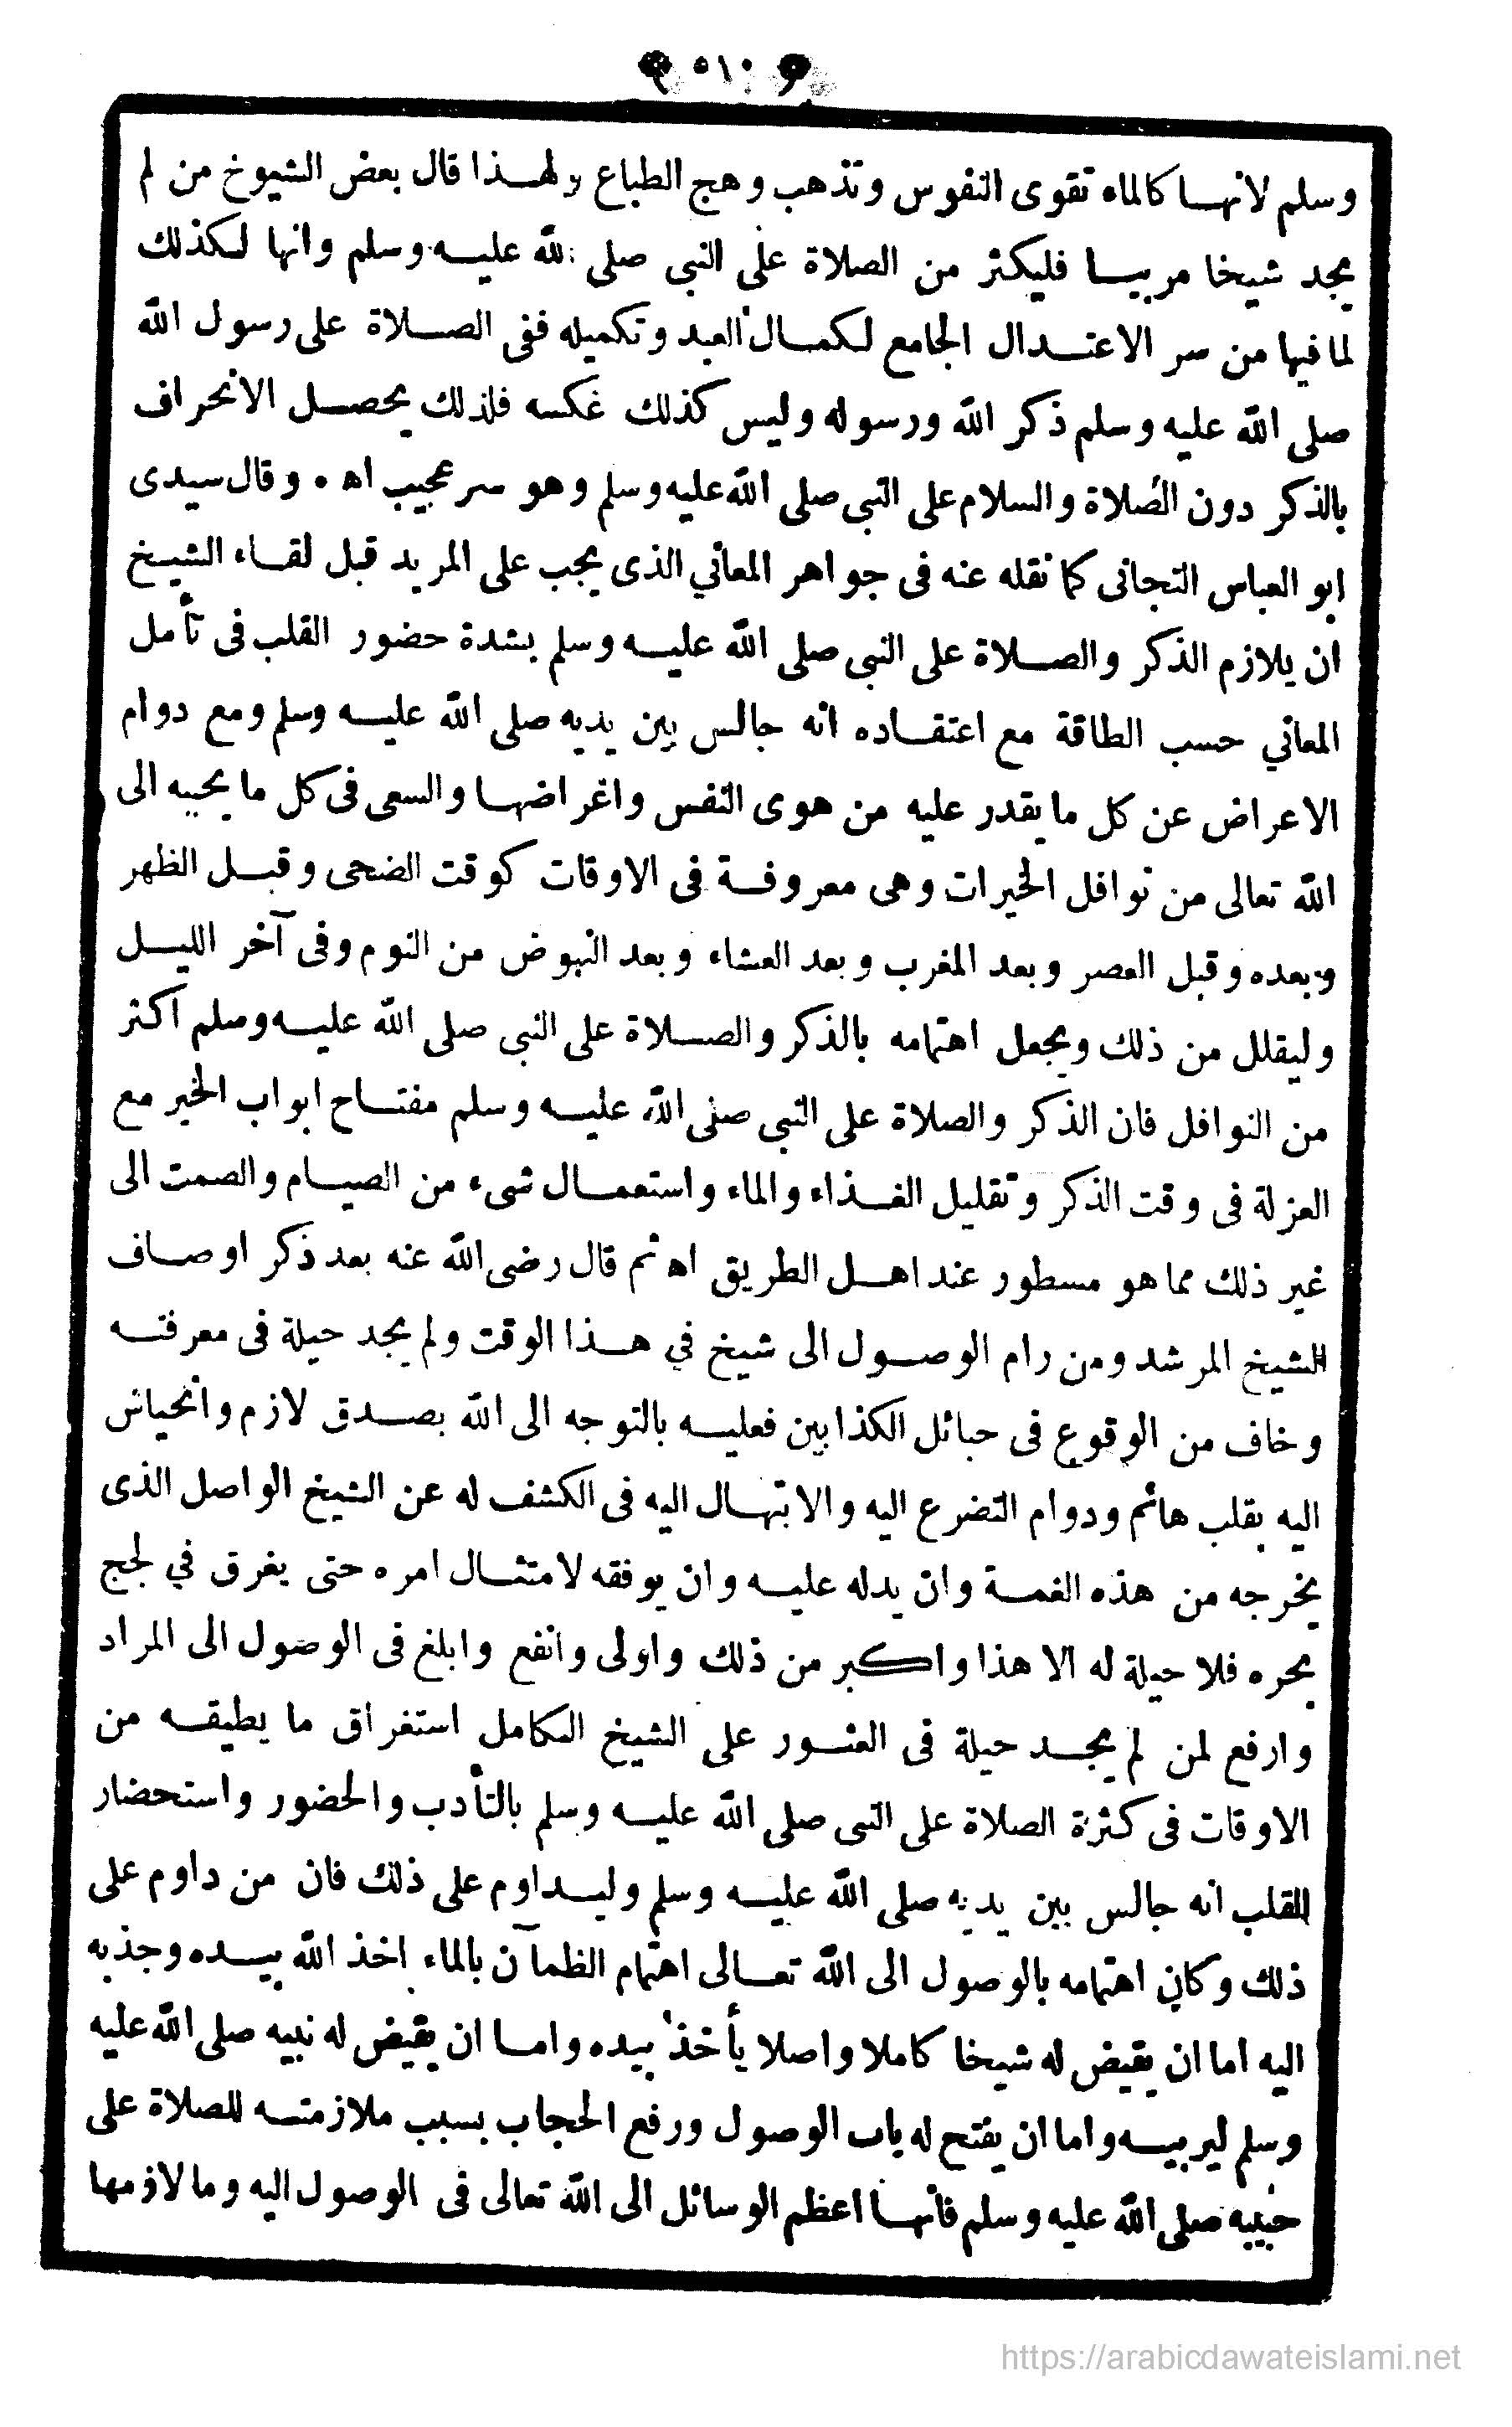 ٥١٠
وسلم لانهـا كالماء تقوى النفوس وتذهب وهج الطباع ولهـذا قال بعض الشيوخ من لم
يجد شيخا مربيـا فليكثر من الصلاة على النبى صلى الله عليـه وسلم وانها لـكذلك
لمافيها من سر الاعتـدال الجامع لـكمـال العبد وتكميله ففى الصـلاة على رسول الله
صلى الله عليه وسلم ذكر الله ورسوله وليس كذلك عكسه فلذلك يحصـل الانحراف
بالذكر دون الصلاة والسلام على النبى صلى الله عليه وسلم وهو سر عجيب اه ٠ وقال سيدى
ابو العباس التجانى كما نقله عنه فى جواهر المعاني الذى يجب على المريد قبل لقـاء الشيـخ
ان يلازم الذكر والصـلاة على النبى صلى الله عليـه وسلم بشدة حضور القلب فى تأمل
المعاني حسب الطاقة مع اعتقـاده انه جالس بين يديه صلى الله عليـه وسلم ومع دوام
الاعراض عن كل ما يقدر عليه من هوى النفس واغراضهـا والسعى فى كل ما يحببه الى
الله تعالى من نوافل الخيرات وهى معروفـة فى الاوقات كوقت الضحى وقبـل الظهر
وبعده وقبل العصر وبعد المغرب وبعد العشاء وبعد النهوض من النوم وفى آخر الليـل
وليقلل من ذلك ويجعل اهتمامه بالذكر والصـلاة على النبى صلى الله عليـه وسلم اكثر
من النوافل فان الذكر والصلاة على النبى صلى الله عليـه وسلم مفتـاح ابواب الخير مع
العزلة فى وقت الذكر وتقليل الغـذاء والماء واستعمـال شىء من الصيـام والصمت الى
غير ذلك مما هو مسطور عند اهـل الطريق اه ثم قال رضى الله عنه بعد ذكر اوصـاف
الشيخ المرشد ومن رام الوصـول الى شيخ في هـذا الوقت ولم يجد حيلة فى معرفتـه
وخاف من الوقوع فى حبائل الكذابين فعليـه بالتوجه الى الله بصـدق لازم وانحياش
اليه بقلب هائم ودوام التضرع اليه والابتهـال اليه فى الكشف له عن الشيخ الواصل الذى
يخرجه من هذه الغمـة وان يدله عليـه وان يوفقه لامتثـال امره حتى يغرق في لجج
بحره فلا حيلة له الا هذا واكـبر من ذلك واولى وانفع وابلغ فى الوصول الى المراد
وارفع لمن لم يجـد حيلة فى العثـور على الشيخ الـكامل استغراق ما يطيقـه من
الاوقات فى كثرة الصلاة على النبى صلى الله عليـه وسلم بالتأدب والحضور واستحضار
القلب انه جالس بين يديه صلى الله عليـه وسلم وليـداوم على ذلك فان من داوم على
ذلك وكان اهتمامه بالوصول الى الله تعـالى اهتمام الظمآن بالماء اخذ الله بيـده وجذبه
اليه اما ان يقيض له شيخا كاملا واصلا يأخذ بيده وامـا ان يقيض له نبيه صلى الله عليه
وسلم ليربيـه واما ان يفتح له باب الوصول ورفع الحجاب بسبب ملازمتـه للصلاة على
حبيبه صلى الله عليه وسلم فانهـا اعظم الوسائل الى الله تعالى فى الوصول اليه وما لازمها
https://arabicdawateislami.net